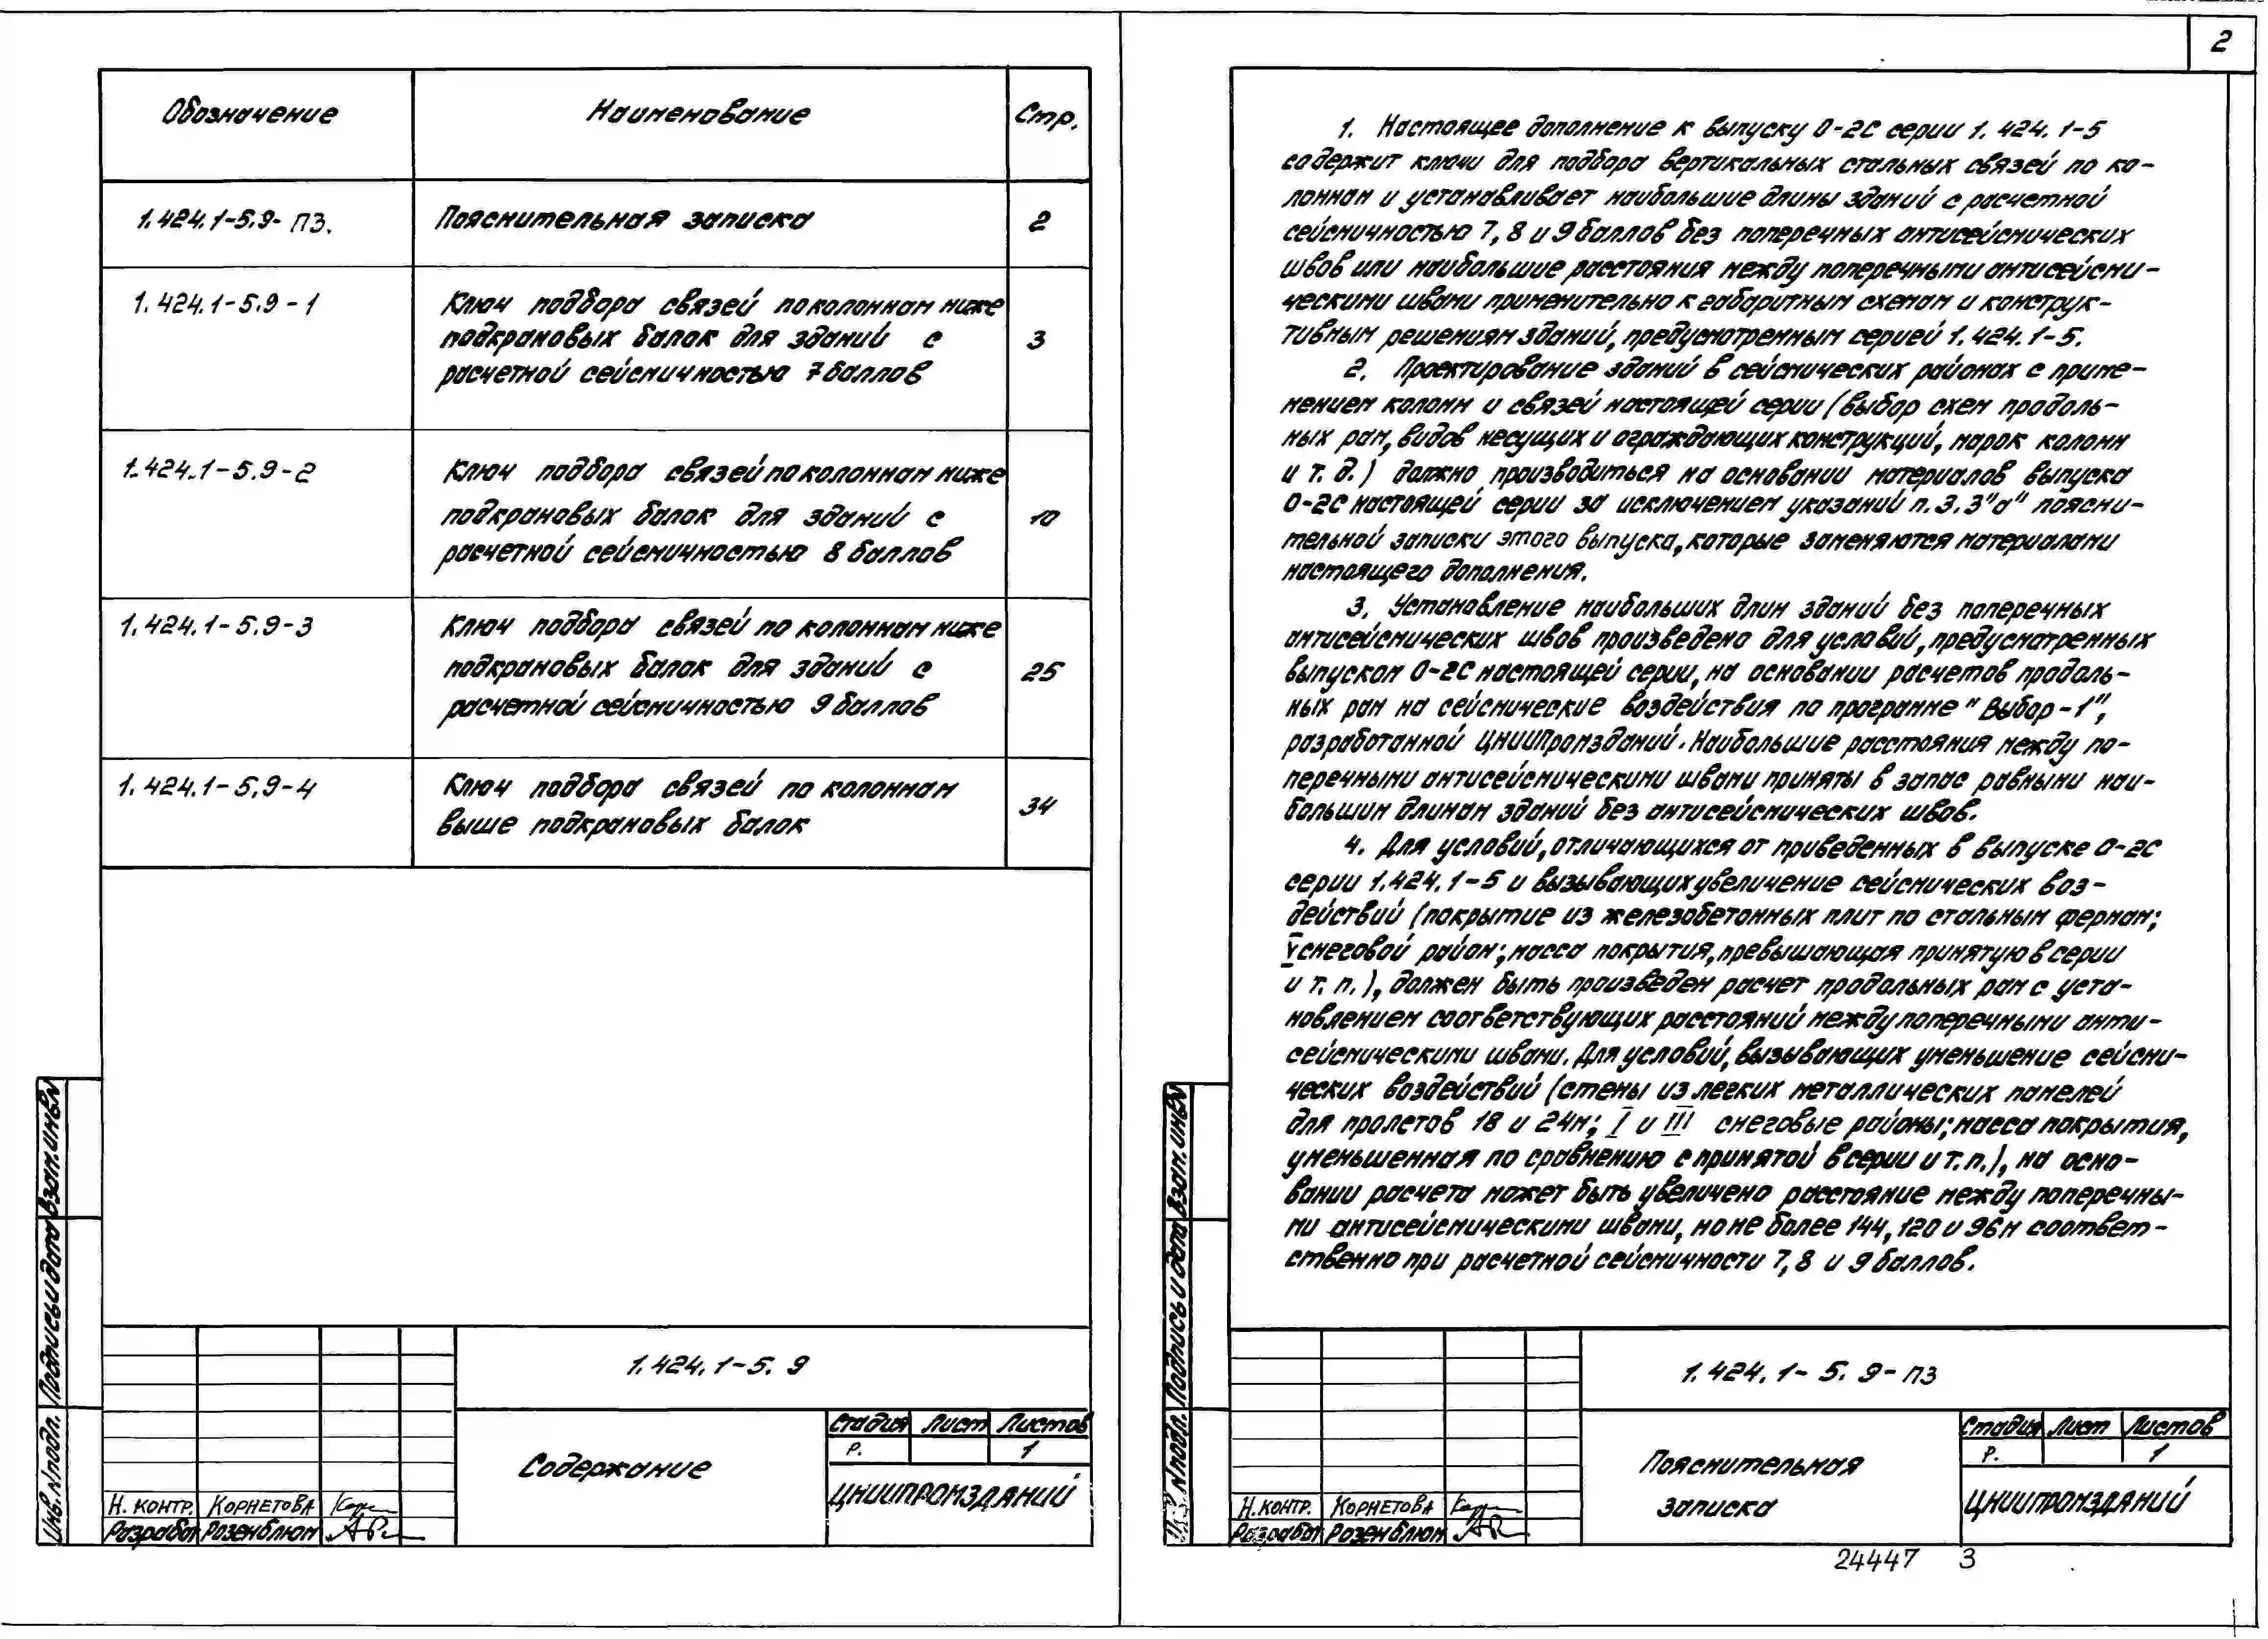 Обозначение Наименование Стр.
1.424.1-5.9-ПЗ. Пояснительная записка 2
1.424.1-5.9-1 Ключ подбора связей по колоннам ниже
подкрановых балок для зданий с 3
расчетной сейсмичностью 7 баллов
1.424.1-5.9-2 Ключ подбора связей по колоннам ниже
подкрановых балок для зданий с 10
расчетной сейсмичностью 8 баллов
1.424.1-5.9-3 Ключ подбора связей по колоннам ниже
подкрановых балок для зданий с 25
расчетной сейсмичностью 9 баллов
1.424.1-5.9-4 Ключ подбора связей по колоннам
выше подкрановых балок 34
Взам.инв.№
Подпись и дата
Инв.№подл.
1.424.1-5.9
Содержание
Стадия Лист Листов
Р. 1
ЦНИИпромзданий
Н.контр. Корнетова
Разработ Розенблюм
2
1. Настоящее дополнение к выпуску 0-2С серии 1.424.1-5
содержит ключи для подбора вертикальных стальных связей по ко-
лоннам и устанавливает наибольшие длины зданий с расчетной
сейсмичностью 7, 8 и 9 баллов без поперечных антисейсмических
швов или наибольшие расстояния между поперечными антисейсми-
ческими швами применительно к габаритным схемам и конструк-
тивным решениям зданий, предусмотренным серией 1.424.1-5.
2. Проектирование зданий в сейсмических районах с приме-
нением колонн и связей настоящей серии (выбор схем продоль-
ных рам, видов несущих и ограждающих конструкций, марок колонн
и т.д.) должно производиться на основании материалов выпуска
0-2С настоящей серии за исключением указаний п.3.3"а" поясни-
тельной записки этого выпуска, которые заменяются материалами
настоящего дополнения.
3. Установление наибольших длин зданий без поперечных
антисейсмических швов произведено для условий, предусмотренных
выпуском 0-2С настоящей серии, на основании расчетов продоль-
ных рам на сейсмические воздействия по программе "Выбор-1",
разработанной ЦНИИпромзданий. Наибольшие расстояния между по-
перечными антисейсмическими швами приняты в запас равными наи-
большим длинам зданий без антисейсмических швов.
4. Для условий, отличающихся от приведенных в выпуске 0-2С
серии 1.424.1-5 и вызывающих увеличение сейсмических воз-
действий (покрытие из железобетонных плит по стальным фермам;
V снеговой район; масса покрытия, превышающая принятую в серии
и т.п.), должен быть произведен расчет продольных рам с уста-
новлением соответствующих расстояний между поперечными анти-
сейсмическими швами. Для условий, вызывающих уменьшение сейсми-
ческих воздействий (стены из легких металлических панелей
для пролетов 18 и 24м; I и III снеговые районы; масса покрытия,
уменьшенная по сравнению с принятой в серии и т.п.), на осно-
вании расчета может быть увеличено расстояние между поперечны-
ми антисейсмическими швами, но не более 144, 120 и 96м соответ-
ственно при расчетной сейсмичности 7, 8 и 9 баллов.
Взам.инв.№
Подпись и дата
Инв.№подл.
1.424.1-5.9-ПЗ
Пояснительная
записка
Стадия Лист Листов
Р. 1
ЦНИИпромзданий
Н.контр. Корнетова
Разработ Розенблюм
24447 3